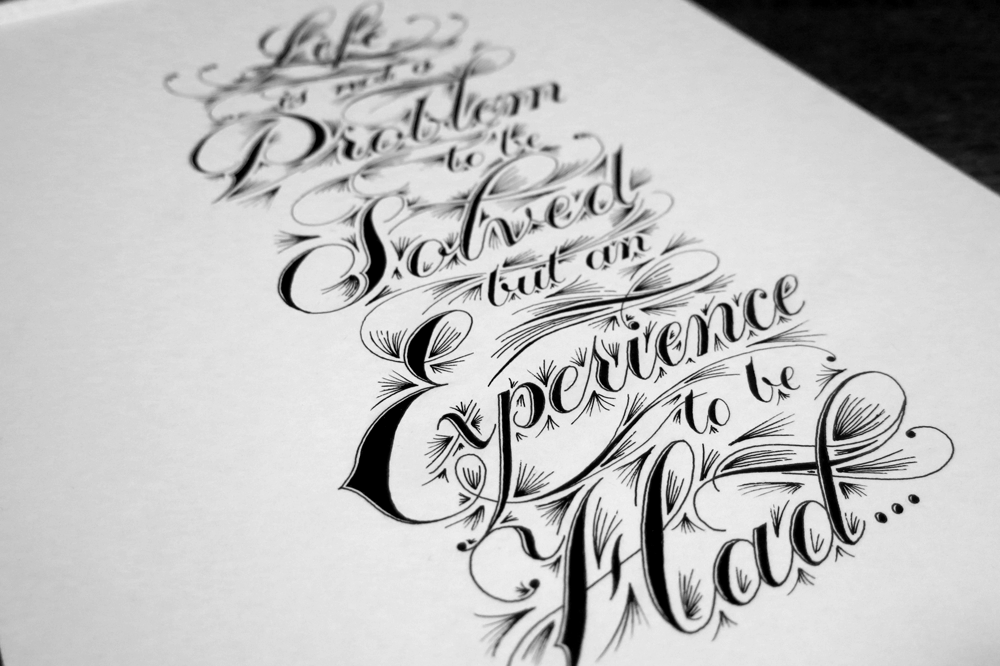 Life
is not a
Problem
to be
Solved
but an
Experience
to be
Had...